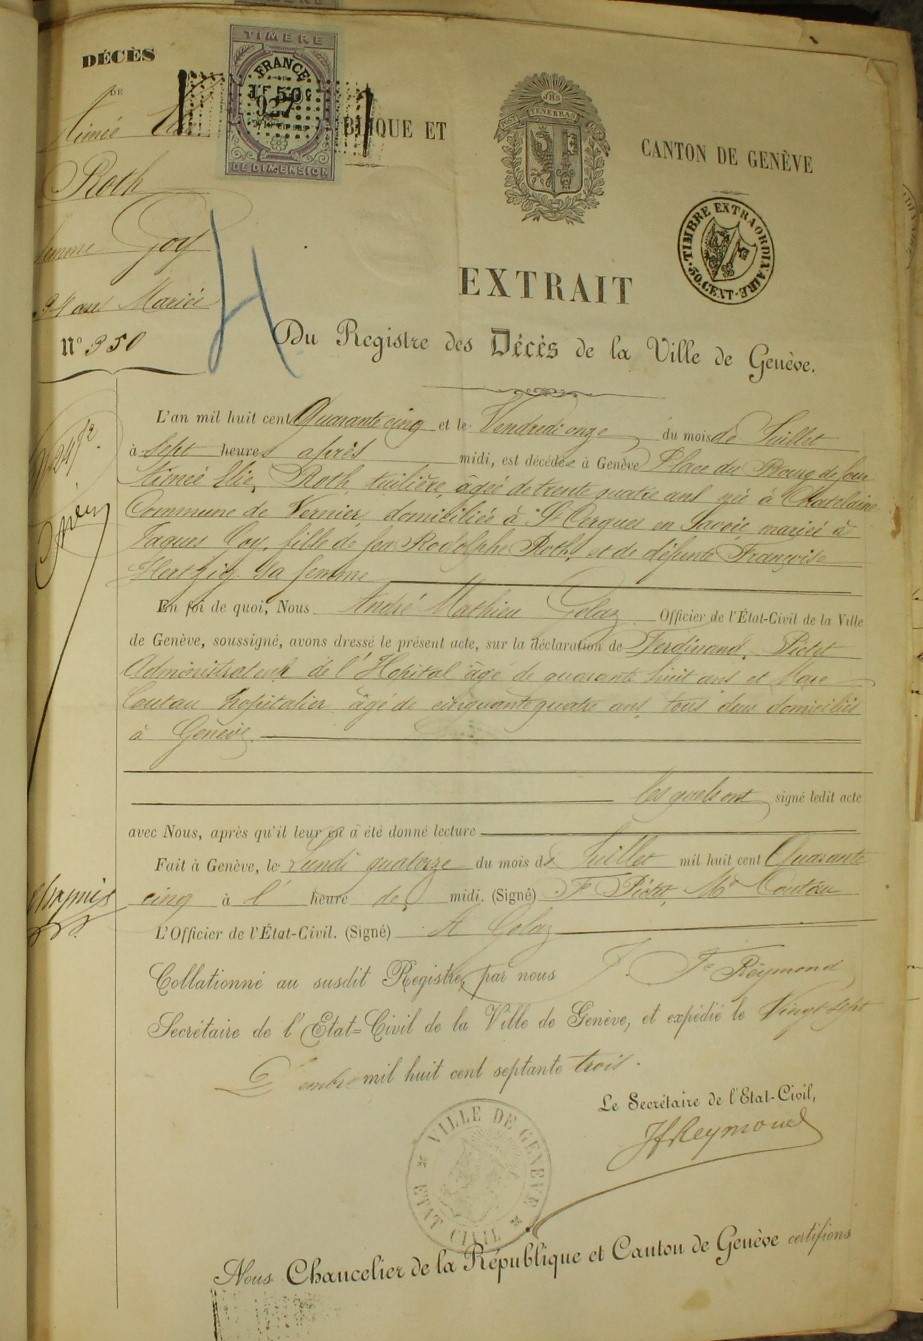 DÉCÈS
DE
Aimée
Roth
femme Goy
34 ans Mariée
N° 350
TIMBRE
FRANCE
1F.50c
927
DE DIMENSION
BLIQUE ET
CANTON DE GENÈVE
JHS
POST TENEBRAS LUX
TIMBRE EXTRAORDINAIRE
50 CENT
H
EXTRAIT
Du Registre des Décès de la Ville de Genève.
L'an mil huit cent Quarante cinq et le Vendredi onze du mois de Juillet
à sept heures après midi, est décédée à Genève Place du Bourg de four
Aimée Elie, Roth, tuilière, agée de trente quatre ans née à Chatelaine
Commune de Vernier, domiciliée à St Cergues en Savoie, mariée à
Jaques Goy, fille de feu Rodolphe Roth, et de défunte Françoise
Hertzig sa femme
En foi de quoi, Nous André Mathieu Golaz Officier de l'État-Civil de la Ville
de Genève, soussigné, avons dressé le présent acte, sur la déclaration de Ferdinand, Pictet
Administrateur de l'Hôpital âgé de quarante huit ans et Marc
Coutau hospitalier âgé de cinquante quatre ans, tous deux domiciliés
à Genève.
les quels ont signé ledit acte
avec Nous, après qu'il leur en a été donné lecture
Fait à Genève, le Lundi quatorze du mois de Juillet mil huit cent Quarante
cinq à l' heure de midi. (Signé) F Pictet, Mc Coutau
L'Officier de l'État-Civil. (Signé) A Golaz
Collationné au susdit Registre, par nous J. Fs Reymond
Secrétaire de l'État-Civil de la Ville de Genève, et expédié le Vingt sept
mil huit cent septante trois.
Le Secrétaire de l'Etat-Civil,
JfReymond
VILLE DE GENÈVE
ETAT CIVIL
Nous Chancelier de la République et Canton de Genève certifions